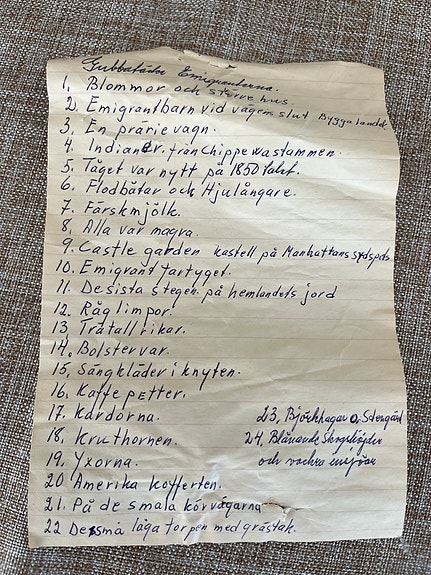 Gubbatäcke Emigranterna.
1, Blommor och större hus
2 Emigrantbarn vid vägens slut Bygga landet
3, En prärievagn.
4, Indianer. från Chippewastammen.
5, Tåget var nytt på 1850 talet.
6, Flodbåtar och Hjulångare.
7, Färskmjölk.
8, Alla var magra.
9, Castle garden kastell på Manhattans sydspets
10, Emigrant fartyget.
11, De sista stegen. på hemlandets jord
12, Råg limpor.
13 Trätallrikar.
14, Bolstervar.
15, Sängkläder i knyten.
16, Kaffe petter.
17, Kardorna.
18, Kruthornen.
19, Yxorna.
20 Amerika kofferten.
21, På de smala körvägarna
22 De små låga torpen med gråstak.
23, Björkhagar o, Stengärd
24, Blånande Skogshöjder
och vackra insjöar